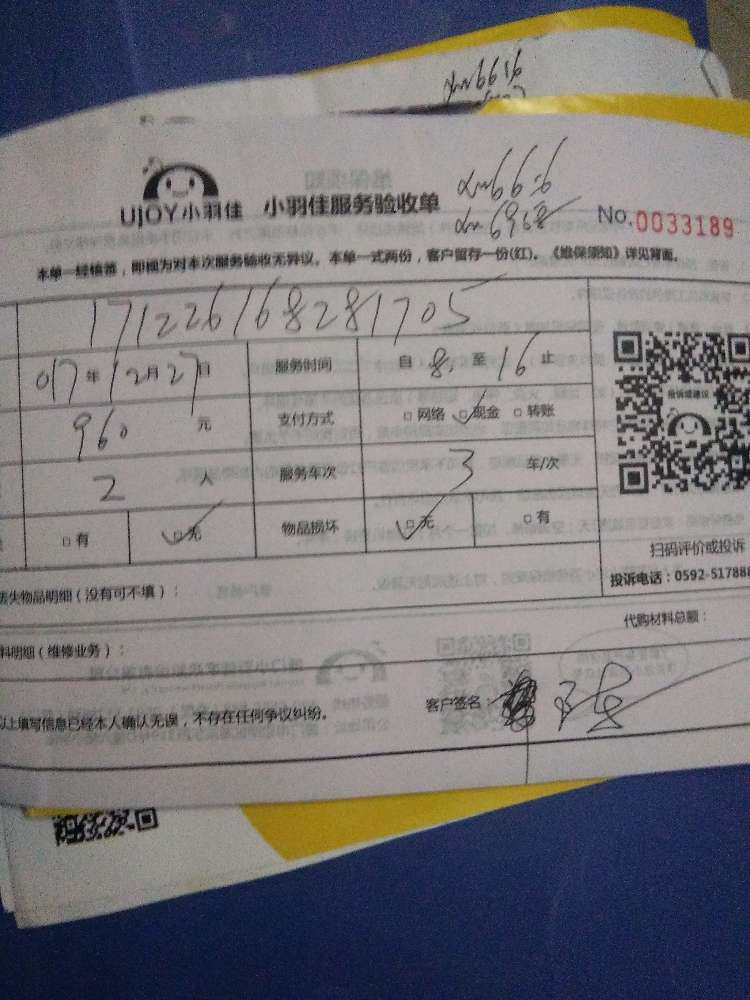 xm6616
UJOY小羽佳 小羽佳服务验收单
xm6616
xm6958
No.0033189
本单一经签署，即视为对本次服务验收无异议。本单一式两份，客户留存一份(红)。《维保须知》详见背面。
171226168281705
017年12月27日 服务时间 自8:至16止
960元 支付方式 □网络 ☑现金 □转账
投诉或建议
2人 服务车次 3车/次
□有 ☑无 物品损坏 ☑无 □有
扫码评价或投诉
丢失物品明细（没有可不填）：
投诉电话：0592-517888
料明细（维修业务）：
代购材料总额：
以上填写信息已经本人确认无误，不存在任何争议纠纷。
客户签名：